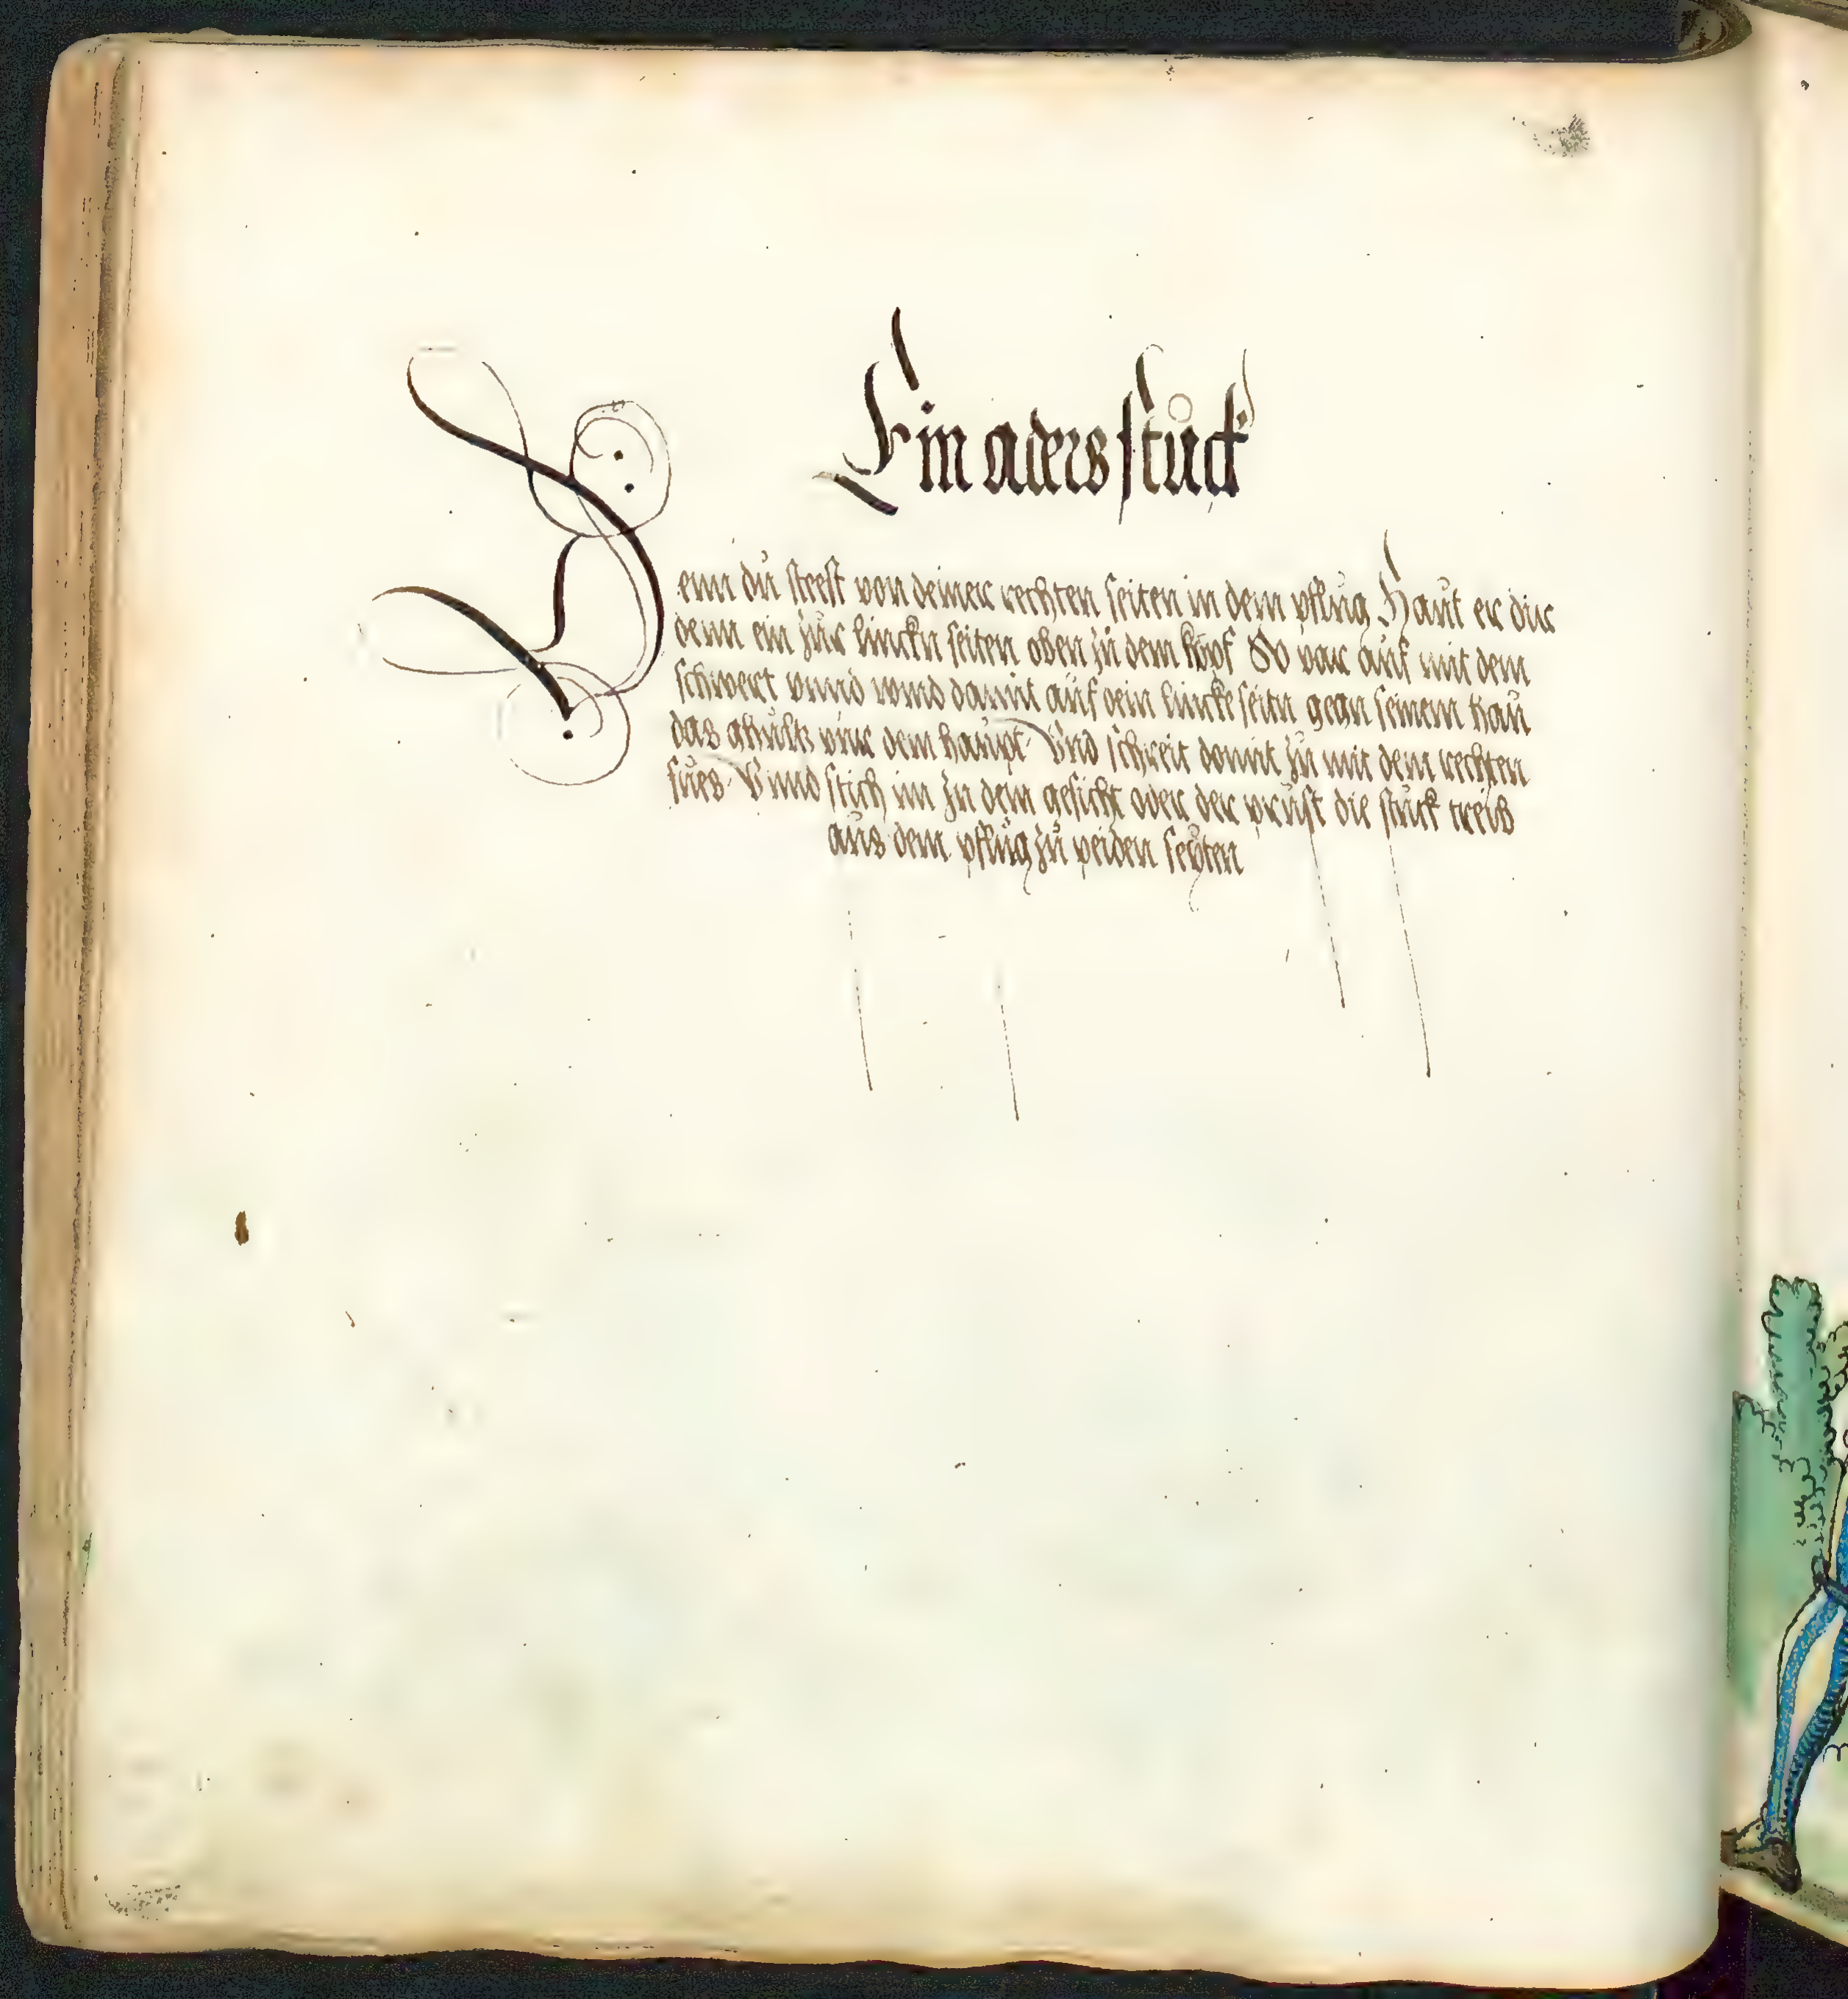 Ein aders stuck
Wenn du steest von deiner rechten seiten in dem pflug Haut er dir
denn ein zur linckn seiten oben zu dem kopf So var auf mit dem
schwert vnnd wind damit auf dein lincke seitn gegn seinem hau
das ghultz vnr dem haupt Vnd schreit domit zu mit dem rechten
fues Vnnd stich im zu dem gesicht oder der prust die stuck treib
aus dem pflug zu peiden seyten